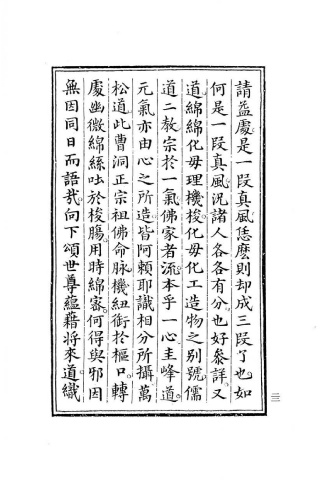 請益處是一段真風恁麽則却成三段了也如
何是一段真風況諸人各各有分也好參詳又
道綿綿化母理機梭化母化工造物之别號儒
道二教宗於一氣佛家者流本乎一心圭峰道
元氣亦由心之所造皆阿賴耶識相分所攝萬
松道此曹洞正宗祖佛命脉機紐銜於樞口轉
處幽微綿絲吐於梭腸用時綿審何得與邪因
無因同日而語哉向下頌世尊蘊藉將來道織
二二